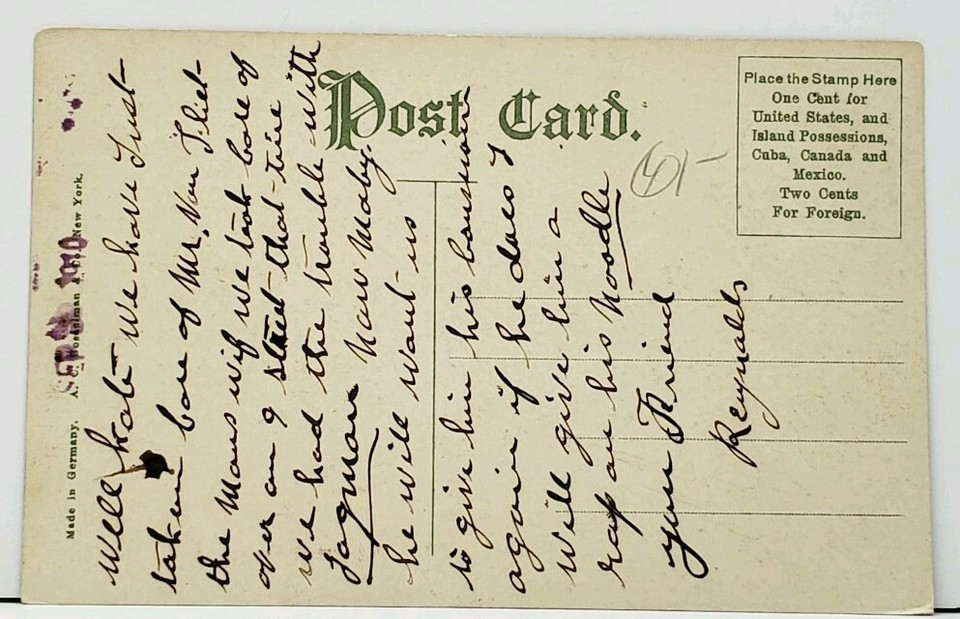 Made in Germany. A. C. Bosselman & Co., New York.
Post Card.
Place the Stamp Here
One Cent for
United States, and
Island Possessions,
Cuba, Canada and
Mexico.
Two Cents
For Foreign.
Well Kate we have Just
taken care of Mr. Van
the Mans wif we took care of
over on 9 that time
we had the trouble with
now Maby.
he will want us
to give him his
again if he does I
will give him a
rap on his Noodle
your Friend
Reynalds